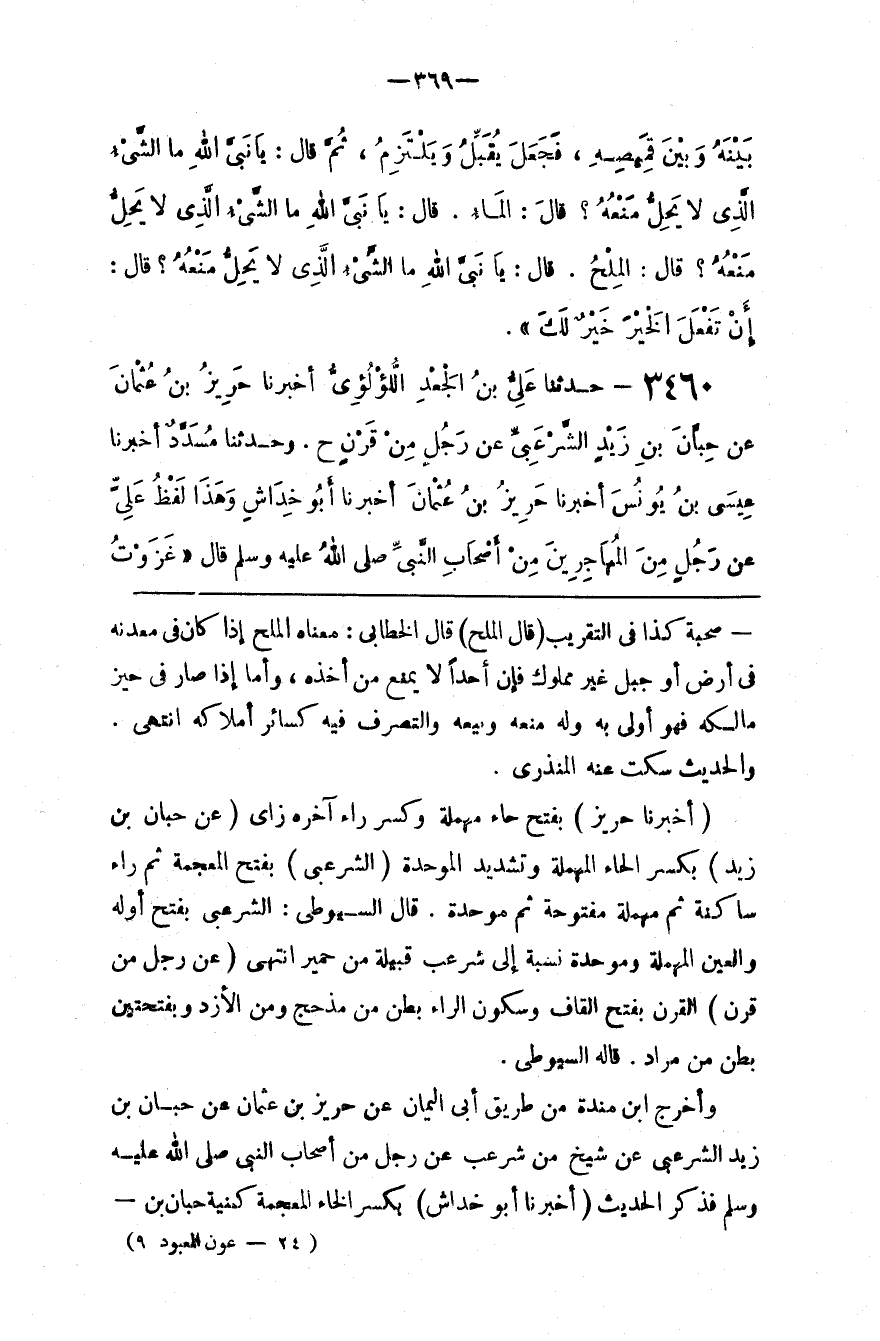 —٣٦٩—
بَيْنَهُ وَبَيْنَ قَمِيصِهِ ، فَجَعَلَ يُقَبِّلُ وَيَلْتَزِمُ ، ثُمَّ قال : يا نَبِىَّ اللهِ ما الشَّىْءِ
الَّذِى لا يَحِلُّ مَنْعُهُ ؟ قالَ : المَاءِ . قال : يا نَبِىَّ اللهِ ما الشَّىْءِ الَّذِى لا يَحِلُّ
مَنْعُهُ ؟ قال : المِلْحُ . قال : يا نَبِىَّ اللهِ ما الشَّىْءِ الَّذِى لا يَحِلُّ مَنْعُهُ ؟ قال :
إِنْ تَفْعَلَ الَخْيْرَ خَيْرٌ لَكَ » .
٣٤٦٠ – حدثنا عَلِىُّ بنُ الَجْعْدِ اللُّؤْلُؤِىُّ أخبرنا حَرِيزُ بنُ عُثْمَانَ
عن حِبَّانَ بنِ زَيْدٍ الشَّرْعَبِىِّ عن رَجُلٍ مِنْ قَرْنٍ ح . وحدثنا مُسَدَّدٌ أخبرنا
عِيسَى بنُ يُونُسَ أخبرنا حَرِيزُ بنُ عُثْمَانَ أخبرنا أَبُو خِدَاشٍ وَهَذَا لَفْظُ عَلِىٍّ
عن رَجُلٍ مِنَ المُهَاجِرِينَ مِنْ أَصْحَابِ النَّبىِّ صلى اللهُ عليه وسلم قال « غَزَوْتُ
— صحبة كذا فى التقريب (قال الملح) قال الخطابى : معناه الملح إذا كان فى معدنه
فى أرض أو جبل غير مملوك فإن أحداً لا يمنع من أخذه ، وأما إذا صار فى حيز
مالكه فهو أولى به وله منعه وبيعه والتصرف فيه كسائر أملاكه انتهى .
والحديث سكت عنه المنذرى .
( أخبرنا حريز ) بفتح حاء مهملة وكسر راء آخره زاى ( عن حبان بن
زيد ) بكسر الحاء المهملة وتشديد الموحدة ( الشرعبى ) بفتح المعجمة ثم راء
ساكنة ثم مهملة مفتوحة ثم موحدة . قال السيوطى : الشرعبى بفتح أوله
والعين المهملة وموحدة نسبة إلى شرعب قبيلة من حمير انتهى ( عن رجل من
قرن ) القرن بفتح القاف وسكون الراء بطن من مذحج ومن الأزد وبفتحتين
بطن من مراد . قاله السيوطى .
وأخرج ابن مندة من طريق أبى اليمان عن حريز بن عثمان عن حبان بن
زيد الشرعبى عن شيخ من شرعب عن رجل من أصحاب النبى صلى الله عليه
وسلم فذكر الحديث ( أخبرنا أبو خداش) بكسر الخاء المعجمة كنية حبان بن —
( ٢٤ — عون المعبود ٩)